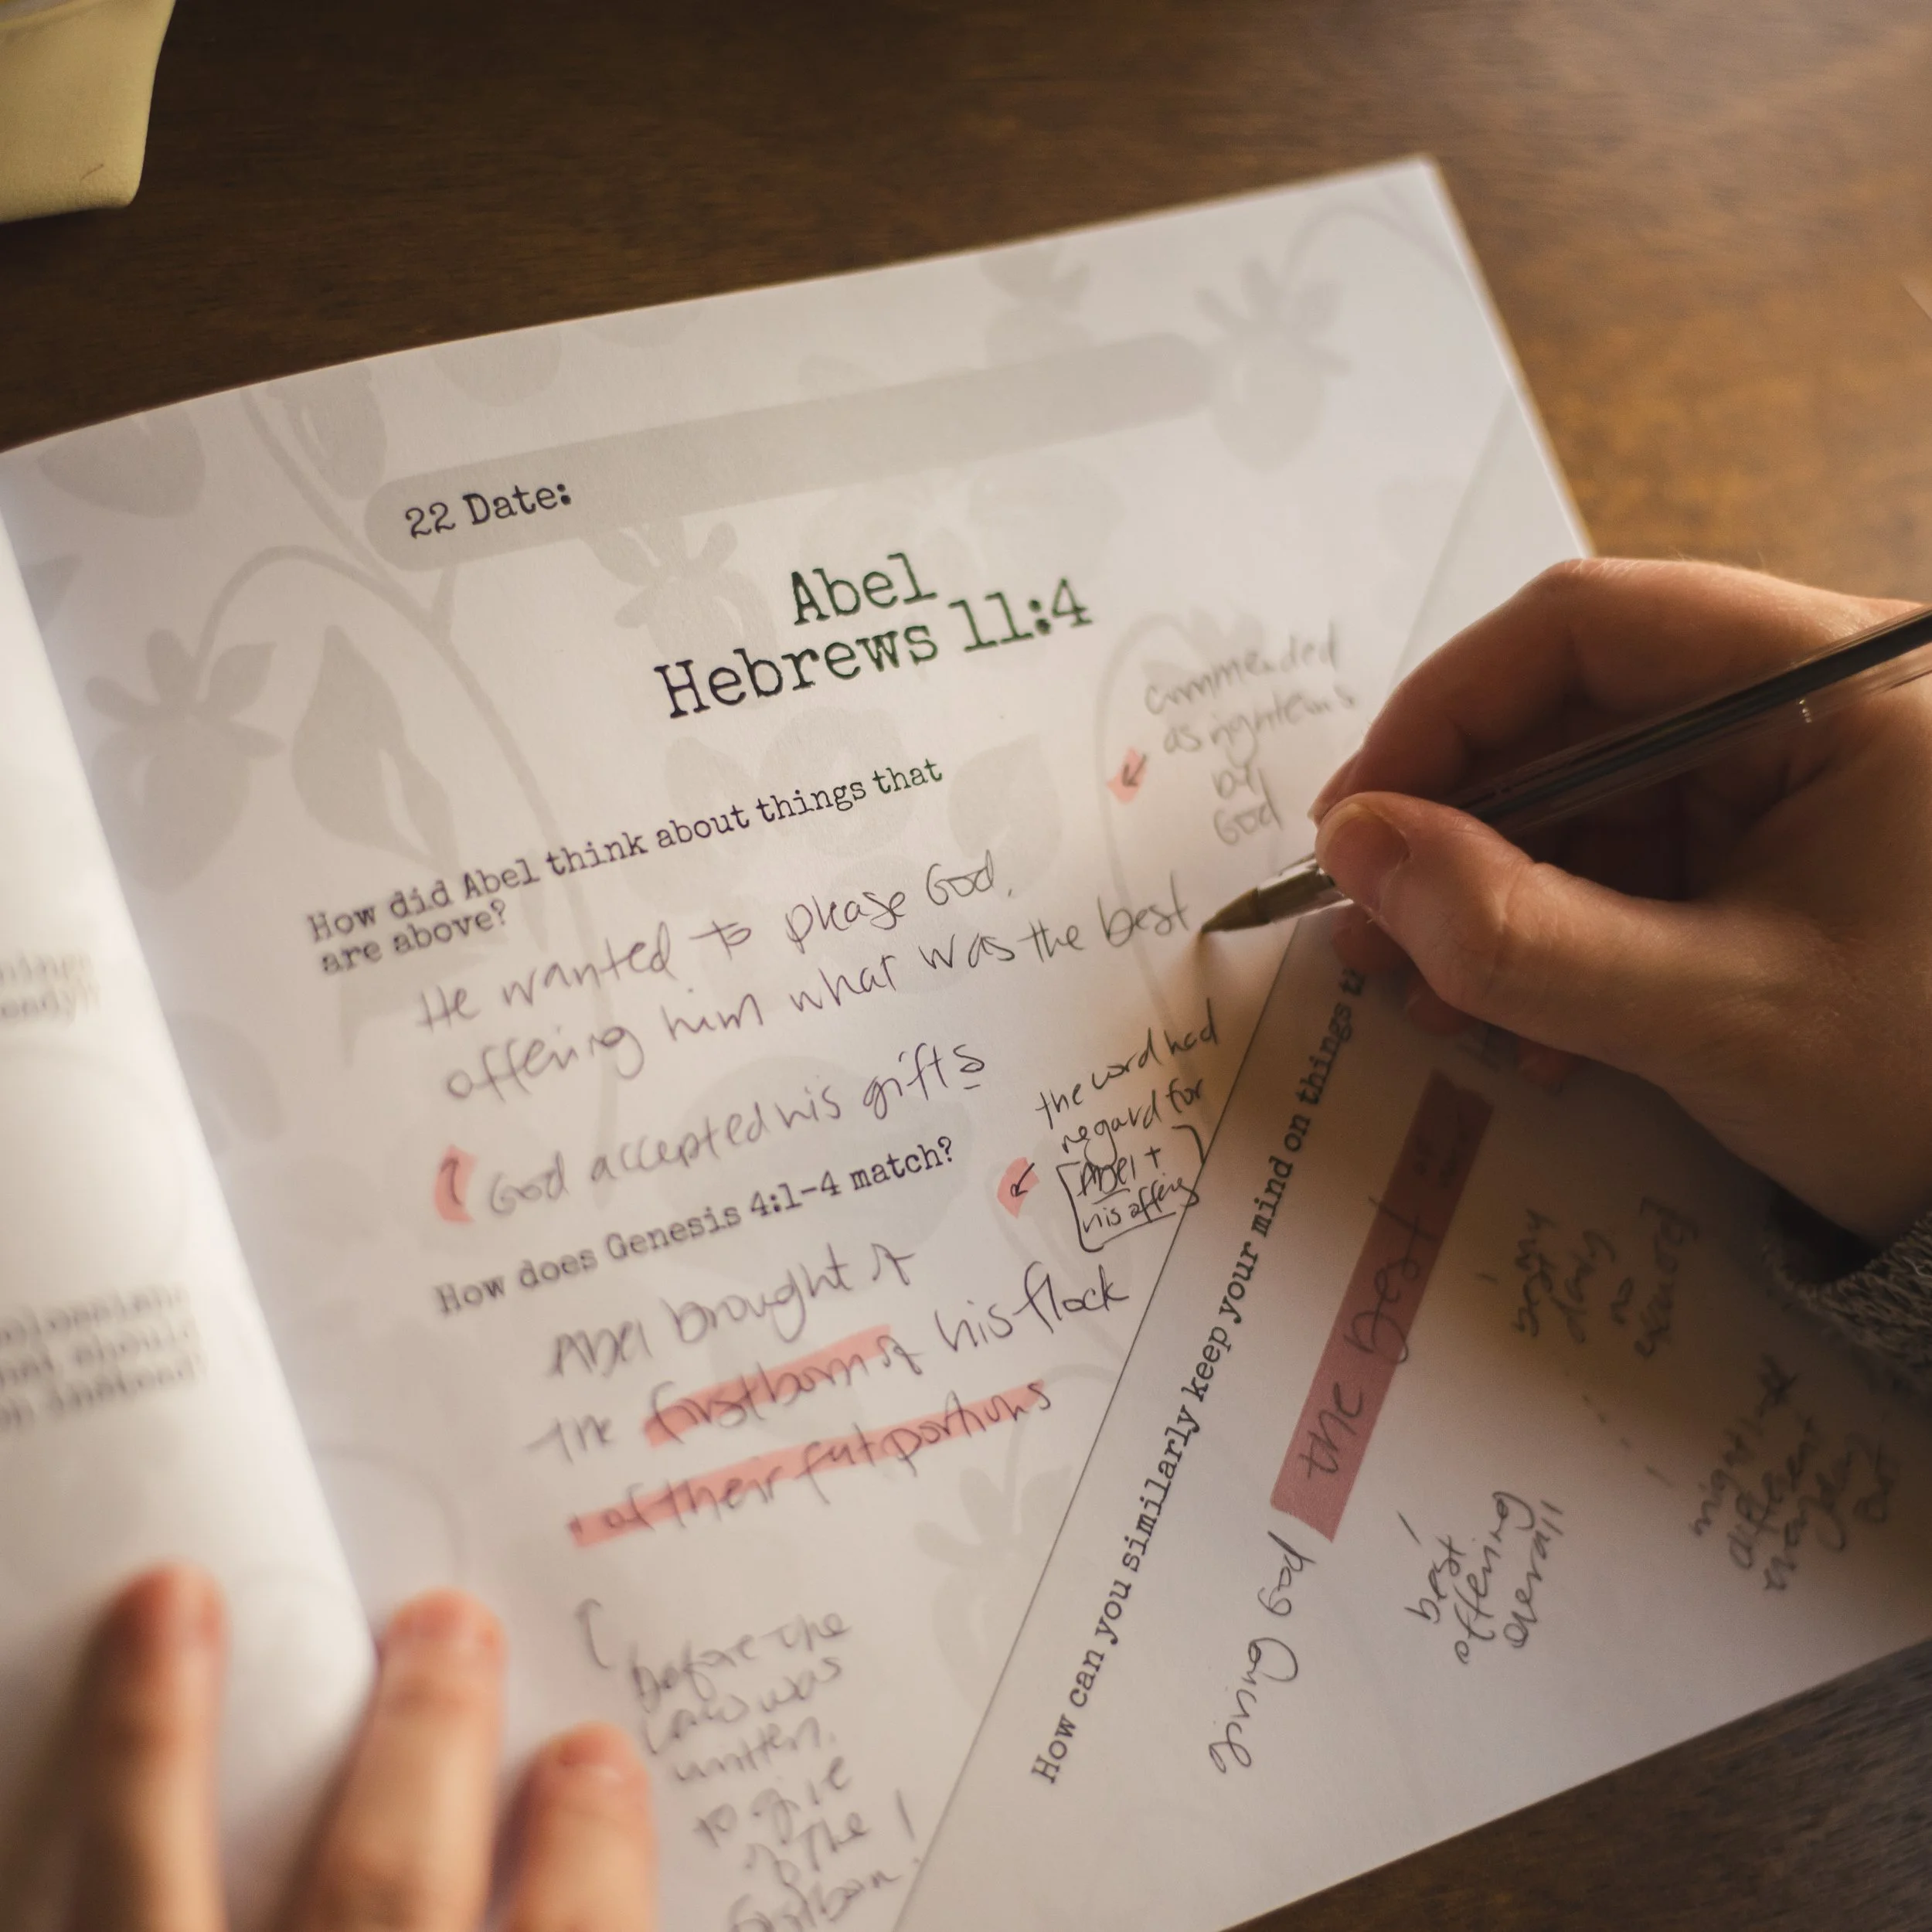 22 Date:
Abel
Hebrews 11:4
commended
as righteous
by
God
How did Abel think about things that
are above?
He wanted to please God.
offering him what was the best
God accepted his gifts
the Lord had
regard for
Abel +
his offering
How does Genesis 4:1-4 match?
Abel brought of
the firstborn of his flock
+ of their fat portions
before the
Law was
written.
to give
of the
firstborn!
How can you similarly keep your mind on things
giving God the best
best
offering
overall
my
best
daily
no
might
different